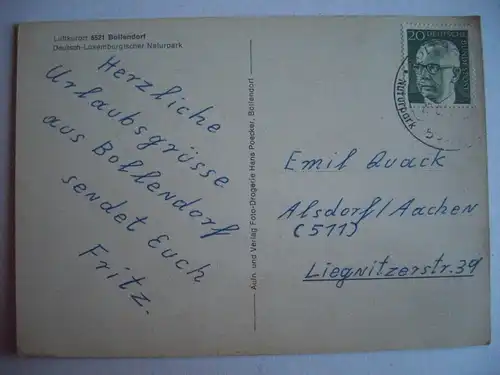 Luftkurort 5521 Bollendorf
Deutsch-Luxemburgischer Naturpark
Herzliche
Urlaubsgrüsse
aus Bollendorf
sendet Euch
Fritz.
Aufn. und Verlag Foto-Drogerie Hans Poecker, Bollendorf
20
DEUTSCHE
BUNDESPOST
Naturpark
Emil Quack
Alsdorf/Aachen
(511)
Liegnitzerstr. 39